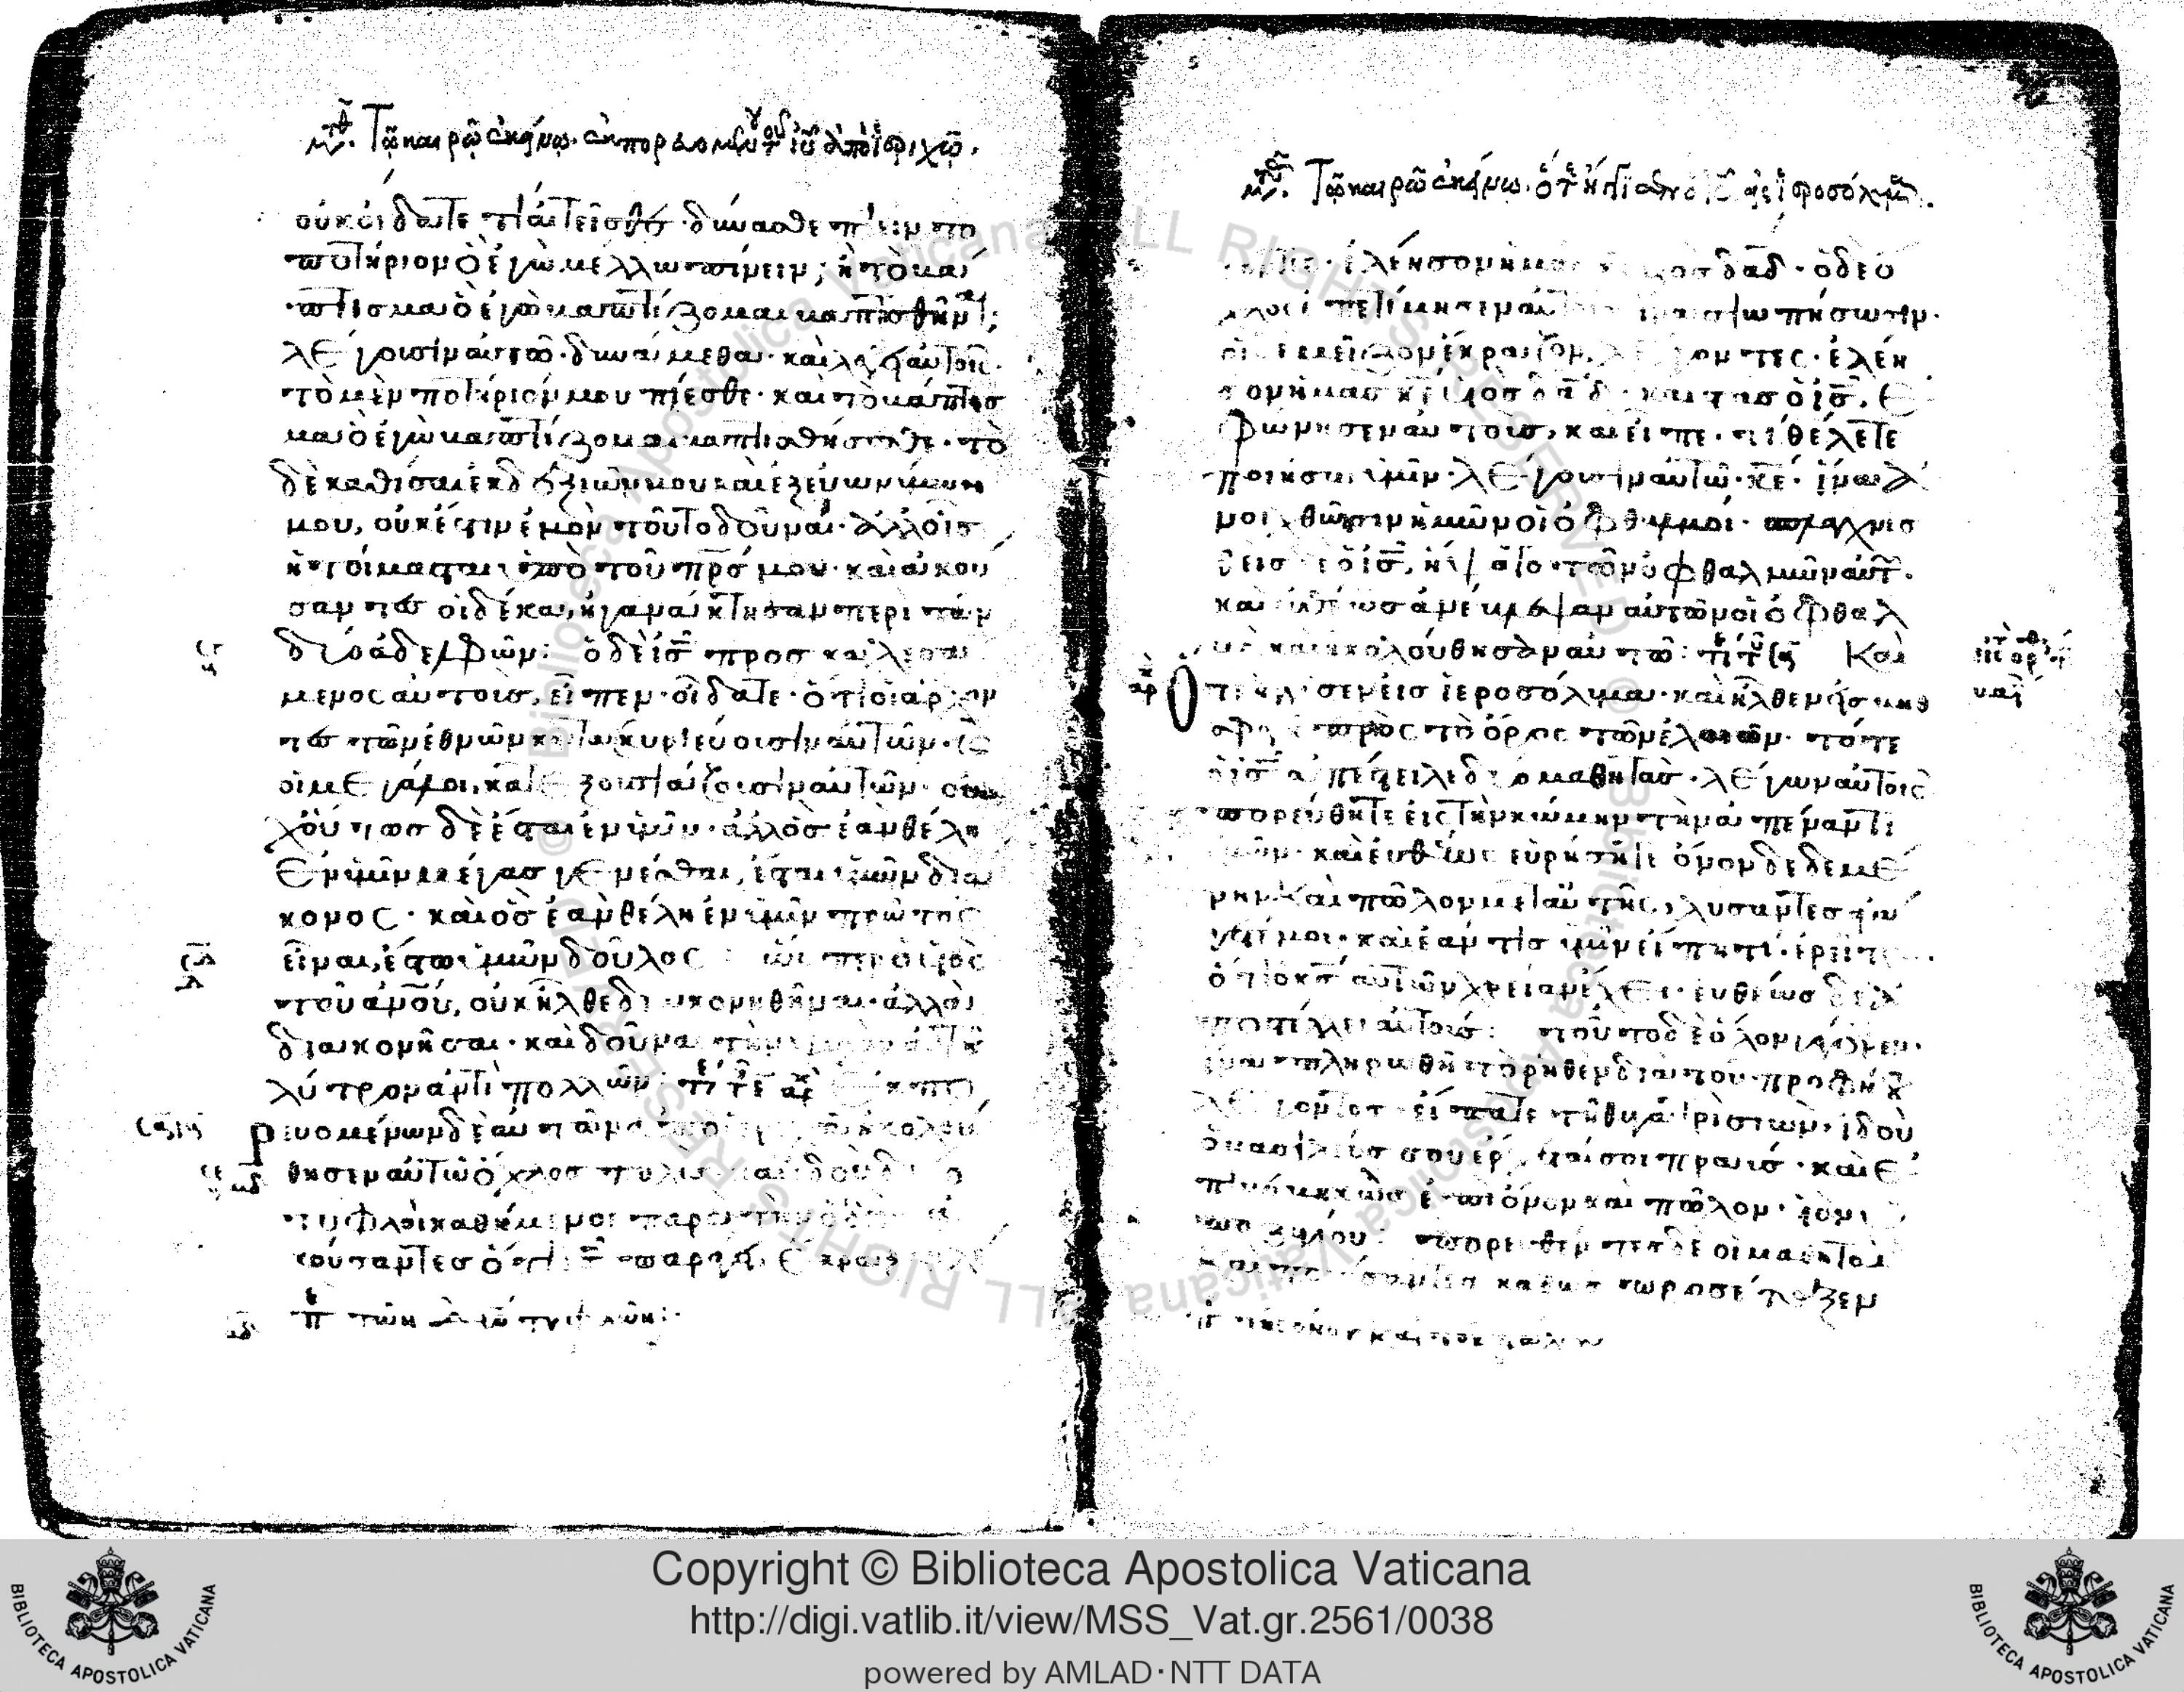 Τῶ καιρῶ ἐκείνω. ἐκπορευομένου τοῦ ἰῦ ἀπὸ ἱεριχῶ.
οὐκ οἴδατε τί αἰτεῖσθε· δύνασθε πιεῖν το
ποτήριον ὃ ἐγὼ μέλλω πίνειν; ἢ τὸ βά
πτισμα ὃ ἐγὼ βαπτίζομαι βαπτισθῆναι;
λέγουσιν αὐτῶ· δυνάμεθα· καὶ λέγει αὐτοῖς·
τὸ μὲν ποτήριόν μου πίεσθε· καὶ τὸ βάπτισ
μα ὃ ἐγὼ βαπτίζομαι βαπτισθήσεσθε· τὸ
δὲ καθίσαι ἐκ δεξιῶν μου καὶ ἐξ εὐωνύμων
μου, οὐκ ἔστιν ἐμὸν τοῦτο δοῦναι· ἀλλ' οἷς
ἡτοίμασται ὑπὸ τοῦ πρσ μου· καὶ ἀκού
σαντες οἱ δέκα, ἠγανάκτησαν περὶ τῶν
δύο ἀδελφῶν: ὁ δὲ ἰσ προσκαλεσά
μενος αὐτοὺς, εἶπεν· οἴδατε· ὅτι οἱ ἄρχον
τες τῶν ἐθνῶν κατακυριεύουσιν αὐτῶν· καὶ
οἱ μεγάλοι, κατεξουσιάζουσιν αὐτῶν· οὐ
χ οὕτως δὲ ἔσται ἐν ὑμῖν· ἀλλ' ὃς ἐὰν θέλη
ἐν ὑμῖν μέγας γενέσθαι, ἔσται ὑμῶν διά
κονος· καὶ ὃς ἐὰν θέλη ἐν ὑμῖν πρῶτος
εἶναι, ἔστω ὑμῶν δοῦλος: ὥσπερ ὁ υἱὸς
τοῦ ἀνου, οὐκ ἦλθε διακονηθῆναι· ἀλλὰ
διακονῆσαι· καὶ δοῦναι τὴν
λύτρον ἀντὶ πολλῶν: ἐκπο
ρευομένων δὲ αὐτῶν ἠκολού
θησεν αὐτῶ ὄχλος πολύς· καὶ ἰδοὺ δύο
τυφλοὶ καθήμενοι παρὰ τὴν ὁδὸν ἀ
κούσαντες ὅτι ἰσ παράγει, ἔκραξαν
Τῶ καιρῶ ἐκείνω. ὅτε ἤγγισεν ὁ ἰσ εἰς ἱεροσόλυμα.
ἐλέησον ἡμᾶς υἱὸς δαδ· ὁ δὲ ὄ
χλος ἐπετίμησεν αὐτοῖς ἵνα σιωπήσωσιν·
οἱ δὲ μεῖζον ἔκραζον, λέγοντες· ἐλέη
σον ἡμᾶς κε υἱὸς δαδ· καὶ στὰς ὁ ἰσ, ἐ
φώνησεν αὐτοὺς, καὶ εἶπε· τί θέλετε
ποιήσω ὑμῖν· λέγουσιν αὐτῶ· κε· ἵνα ἀ
νοιχθῶσιν ἡμῶν οἱ ὀφθαλμοί· σπλαχνισ
θεὶς δὲ ὁ ἰσ, ἥψατο τῶν ὀφθαλμῶν αὐτῶν·
καὶ εὐθέως ἀνέβλεψαν αὐτῶν οἱ ὀφθαλ
μοὶ καὶ ἠκολούθησαν αὐτῶ: Καὶ
ὅτε ἤγγισεν εἰς ἱεροσόλυμα· καὶ ἦλθεν εἰς βηθ
σφαγὴ πρὸς τὸ ὄρος τῶν ἐλαιῶν· τότε
ὁ ἰσ ἀπέστειλε δύο μαθητὰς· λέγων αὐτοῖς
πορεύθητε εἰς τὴν κώμην τὴν ἀπέναντι
ὑμῶν· καὶ εὐθέως εὑρήσετε ὄνον δεδεμέ
νην καὶ πῶλον μετ' αὐτῆς, λύσαντες ἀγά
γετέ μοι· καὶ ἐάν τις ὑμῖν εἴπη τι· ἐρεῖτε
ὅτι ὁ κσ αὐτῶν χρείαν ἔχει· εὐθέως δὲ ἀ
ποστέλλει αὐτούς: τοῦτο δὲ ὅλον γέγονεν·
ἵνα πληρωθῆ τὸ ῥηθὲν διὰ τοῦ προφήτου
λέγοντος εἴπατε τῆ θυγατρὶ σιών· ἰδοὺ
ὁ βασιλεύς σου ἔρχεταί σοι πραΰς· καὶ ἐ
πιβεβηκὼς ἐπὶ ὄνον καὶ πῶλον· υἱὸν ὑ
ποζυγίου: πορευθέντες δὲ οἱ μαθηταὶ
καὶ ποιήσαντες καθὼς προσέταξεν
Copyright © Biblioteca Apostolica Vaticana
http://digi.vatlib.it/view/MSS_Vat.gr.2561/0038
powered by AMLAD·NTT DATA
BIBLIOTECA APOSTOLICA VATICANA
BIBLIOTECA APOSTOLICA VATICANA